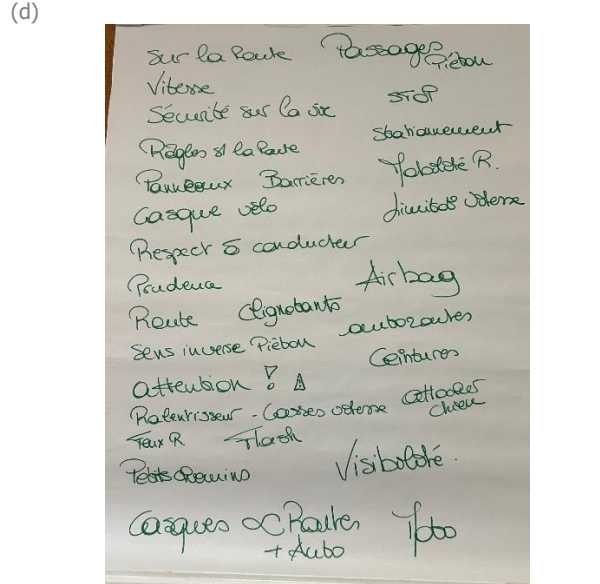 (d)
Sur la Route Passages Piéton
Vitesse
STOP
Sécurité sur la vie
Stationnement
Règles la Route
Panneaux Barrières R.
Casque vélo
Respect conducteur
Prudence Airbag
Route Clignotants autoroutes
Sens inverse Piéton
Ceintures
attention ! ⚠
Ralentisseur - Casses vitesse attacher
chien
Feux R Flash
Petits chemins Visibilité.
Casques Routes Moto
+ Auto